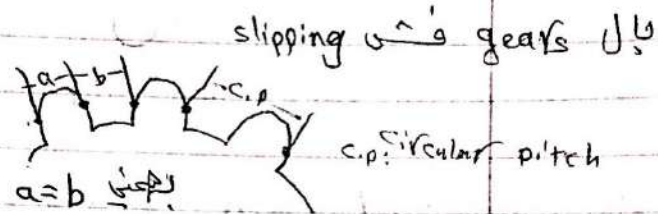 بال gears فش slipping
a b c.p
c.p: circular pitch
بمعني a=b